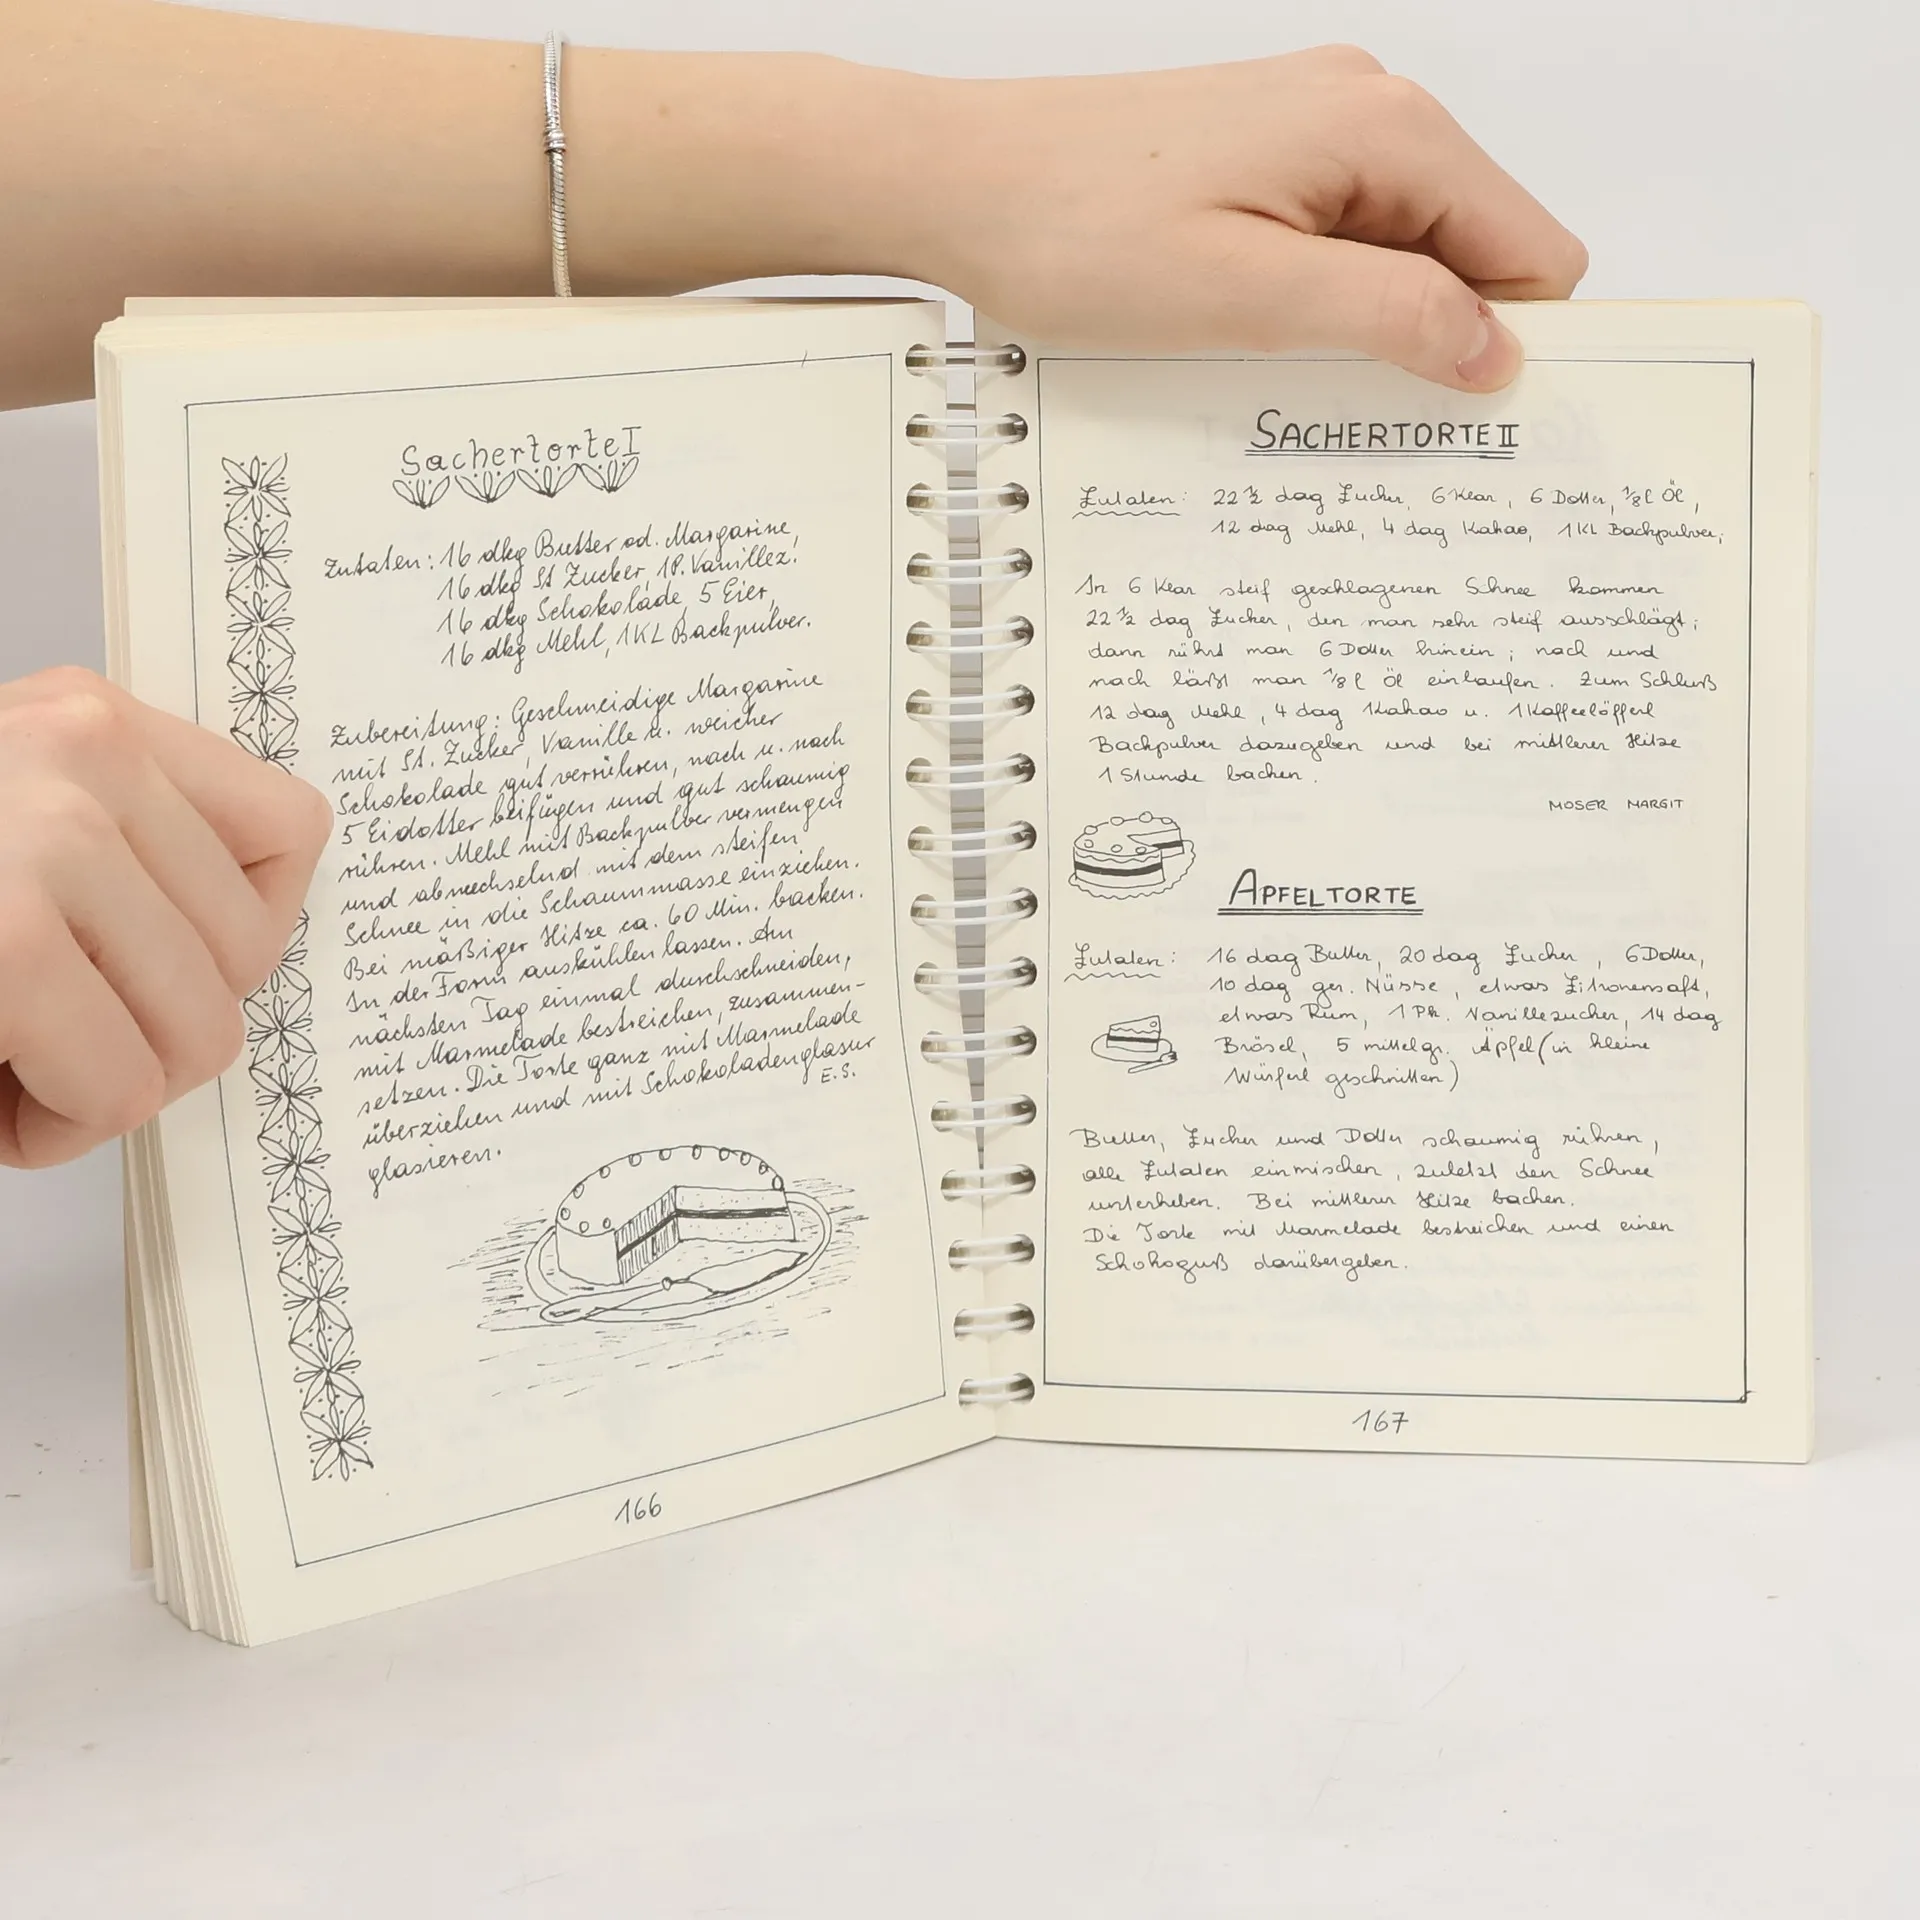 Sachertorte I
Zutaten: 16 dkg Butter od. Margarine,
16 dkg St Zucker, 1P. Vanillez!
16 dkg Schokolade, 5 Eier,
16 dkg Mehl, 1KL Backpulver.
Zubereitung: Geschmeidige Margarine
mit St. Zucker, Vanille u. weicher
Schokolade gut verrühren, nach u. nach
5 Eidotter beifügen und gut schaumig
rühren. Mehl mit Backpulver vermengen
und abwechselnd mit dem steifen
Schnee in die Schaummasse einziehen.
Bei mäßiger Hitze ca. 60 Min. backen.
In der Form auskühlen lassen. Am
nächsten Tag einmal durchschneiden,
mit Marmelade bestreichen, zusammen-
setzen. Die Torte ganz mit Marmelade
überziehen und mit Schokoladenglasur
glasieren.
E.S.
166
SACHERTORTE II
Zutaten: 22 1/2 dag Zucker, 6 Klar, 6 Dotter, 1/8 l Öl,
12 dag Mehl, 4 dag Kakao, 1 KL Backpulver,
In 6 Klar steif geschlagenen Schnee kommen
22 1/2 dag Zucker, den man sehr steif ausschlägt;
dann rührt man 6 Dotter hinein; nach und
nach läßt man 1/8 l Öl einlaufen. Zum Schluß
12 dag Mehl, 4 dag Kakao u. 1 Kaffeelöfferl
Backpulver dazugeben und bei mittlerer Hitze
1 Stunde backen.
MOSER MARGIT
APFELTORTE
Zutaten: 16 dag Butter, 20 dag Zucker, 6 Dotter,
10 dag ger. Nüsse, etwas Zitronensaft,
etwas Rum, 1 Pk. Vanillezucker, 14 dag
Brösel, 5 mittelgr. Äpfel (in kleine
Würferl geschnitten)
Butter, Zucker und Dotter schaumig rühren,
alle Zutaten einmischen, zuletzt den Schnee
unterheben. Bei mittlerer Hitze backen.
Die Torte mit Marmelade bestreichen und einen
Schokoguß darübergeben.
167